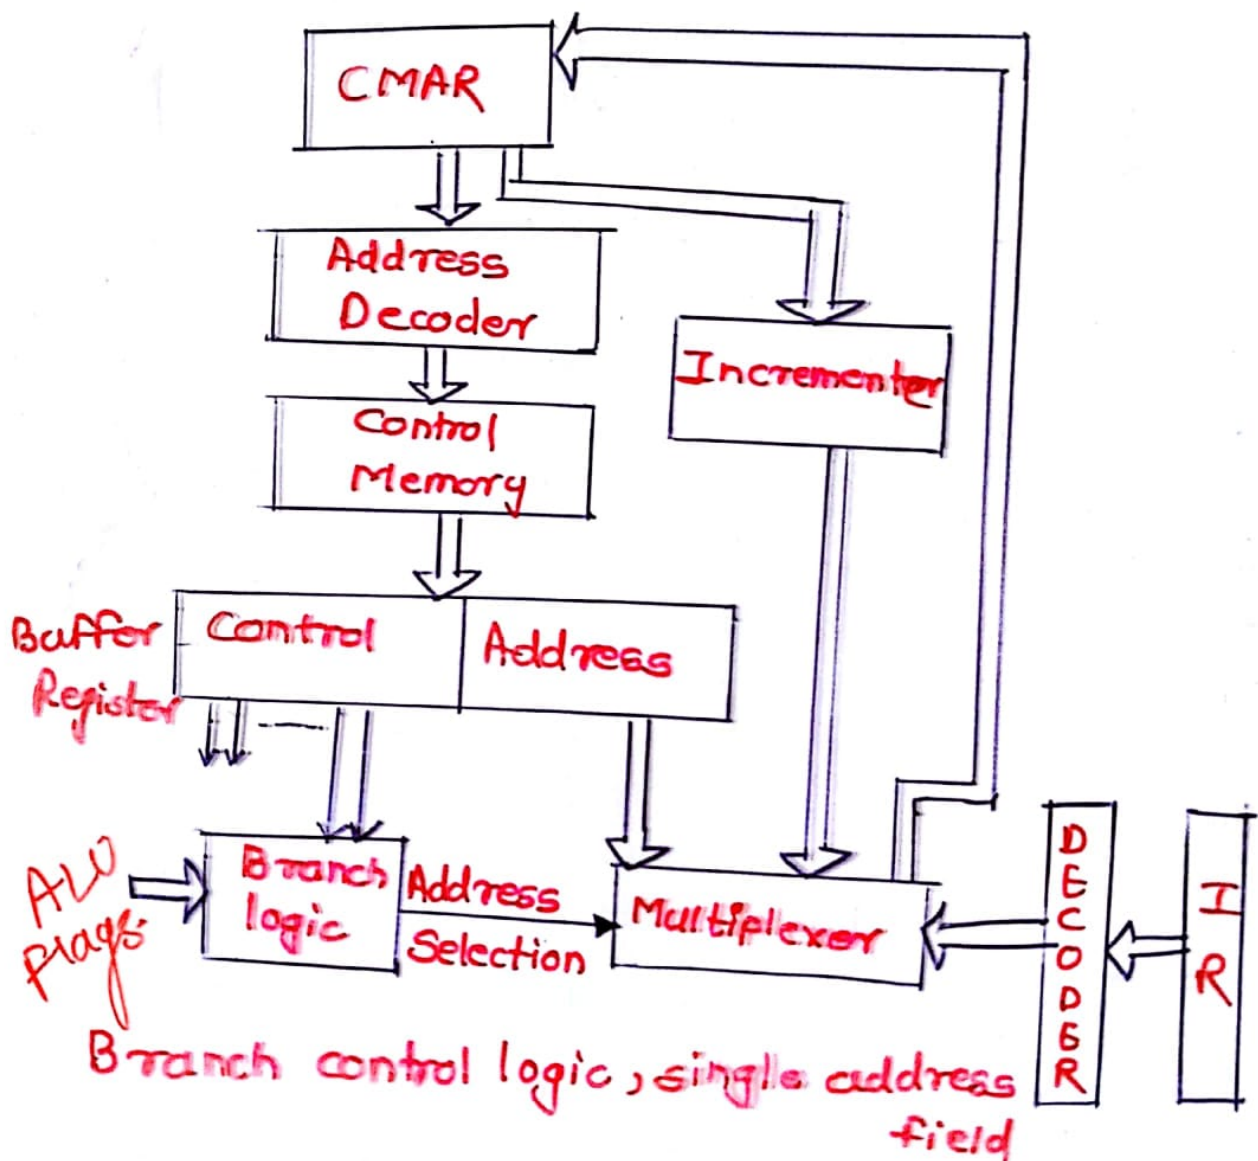 CMAR
Address
Decoder
Incrementer
Control
Memory
Buffer
Register
Control
Address
ALU
flags
Branch
logic
Address
Selection
Multiplexer
DECODER
IR
Branch control logic, single address
field